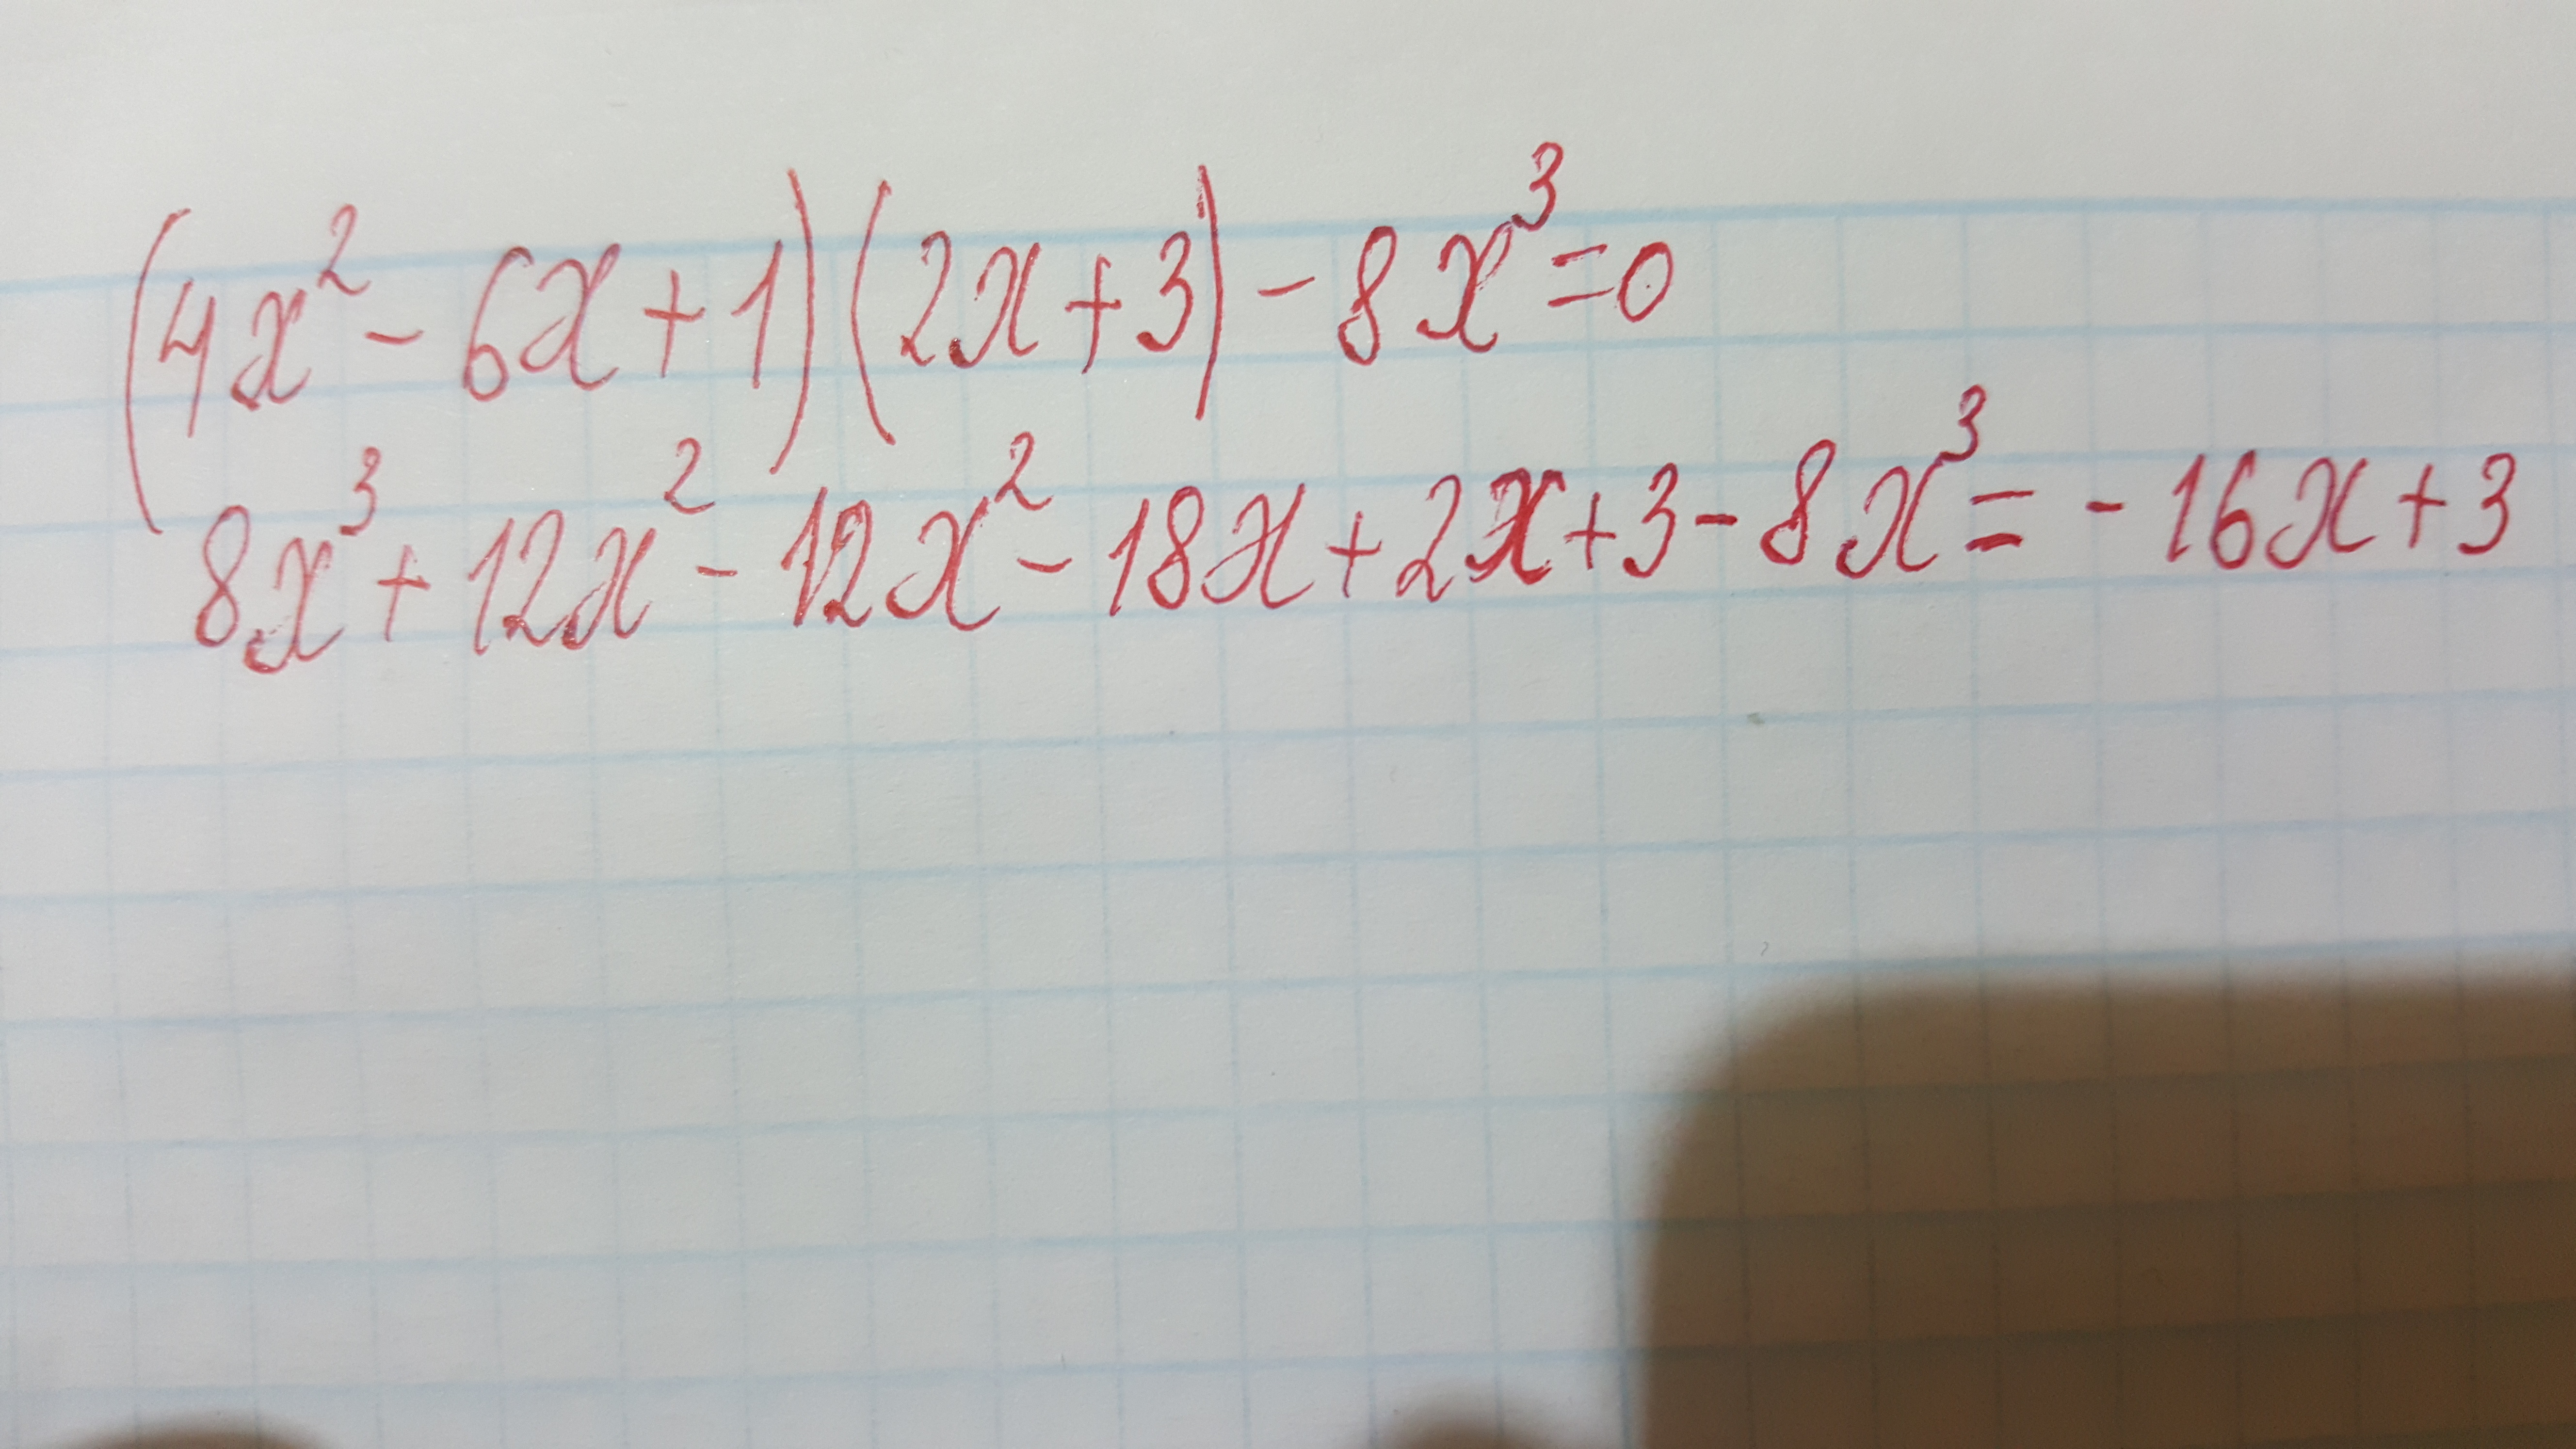 (4x² - 6x + 1)(2x + 3) - 8x³ = 0
8x³ + 12x² - 12x² - 18x + 2x + 3 - 8x³ = - 16x + 3